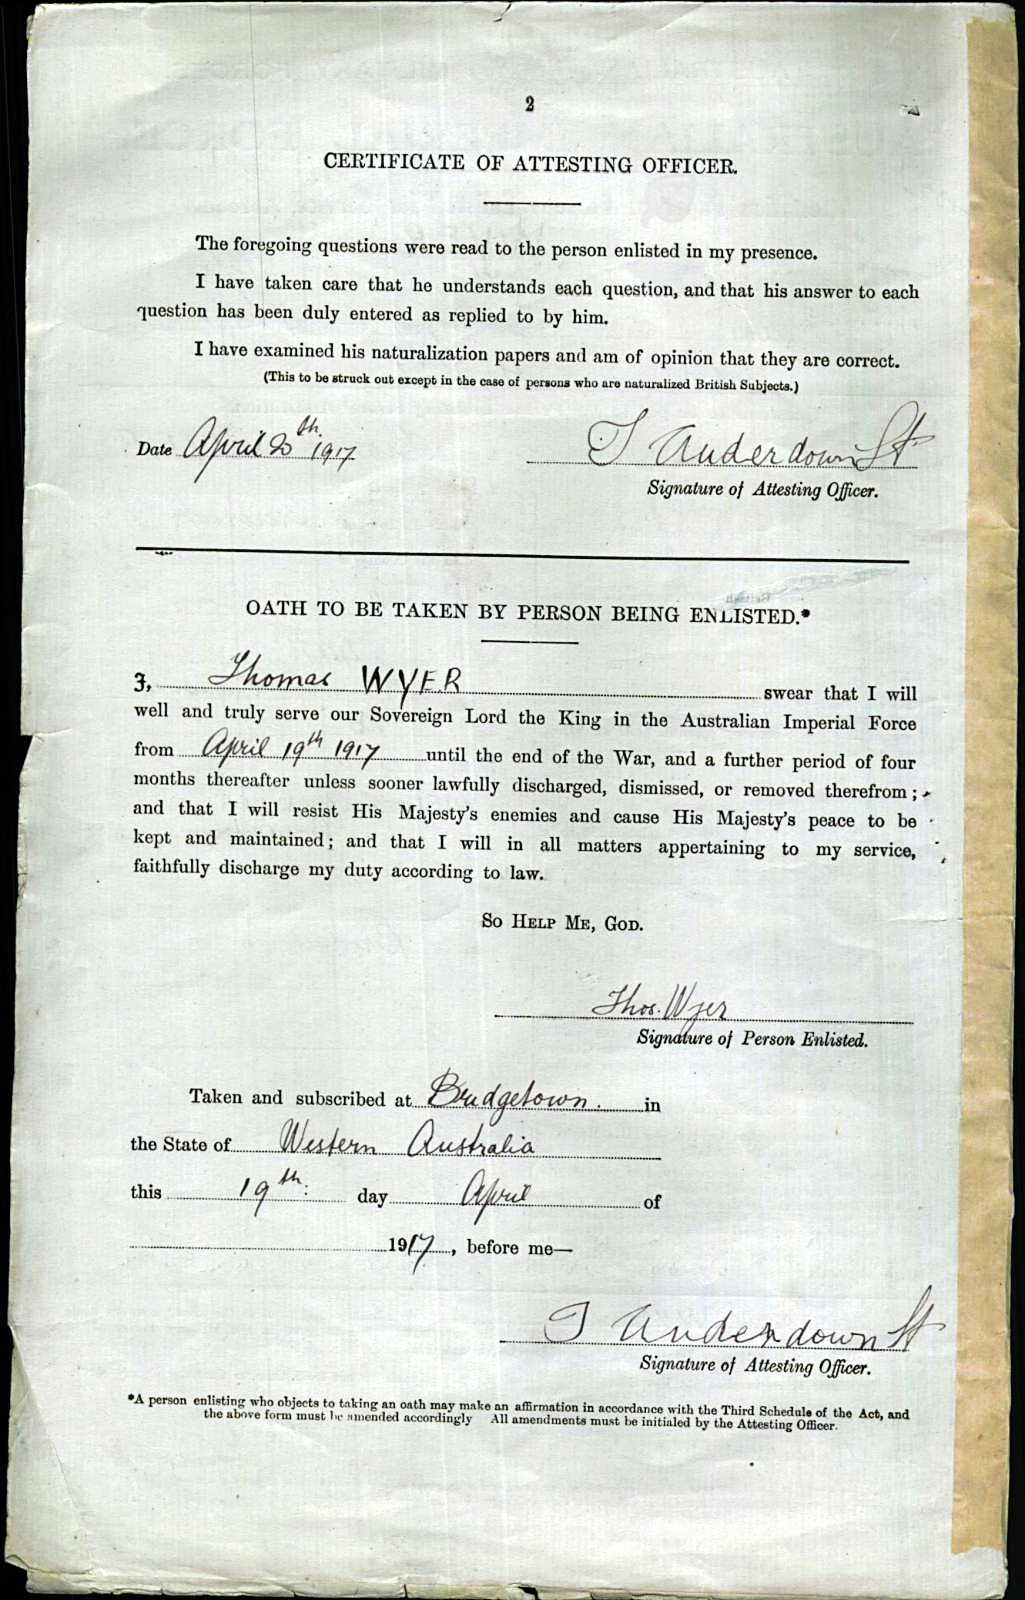 2
CERTIFICATE OF ATTESTING OFFICER.
The foregoing questions were read to the person enlisted in my presence.
I have taken care that he understands each question, and that his answer to each
question has been duly entered as replied to by him.
I have examined his naturalization papers and am of opinion that they are correct.
(This to be struck out except in the case of persons who are naturalized British Subjects.)
Date April 20th 1917
T Underdown Lt
Signature of Attesting Officer.
OATH TO BE TAKEN BY PERSON BEING ENLISTED.*
I, Thomas WYER swear that I will
well and truly serve our Sovereign Lord the King in the Australian Imperial Force
from April 19th 1917 until the end of the War, and a further period of four
months thereafter unless sooner lawfully discharged, dismissed, or removed therefrom;
and that I will resist His Majesty's enemies and cause His Majesty's peace to be
kept and maintained; and that I will in all matters appertaining to my service,
faithfully discharge my duty according to law.
SO HELP ME, GOD.
Thos. Wyer
Signature of Person Enlisted.
Taken and subscribed at Bridgetown. in
the State of Western Australia
this 19th. day April of
1917, before me—
T Underdown Lt
Signature of Attesting Officer.
*A person enlisting who objects to taking an oath may make an affirmation in accordance with the Third Schedule of the Act, and
the above form must be amended accordingly All amendments must be initialed by the Attesting Officer.